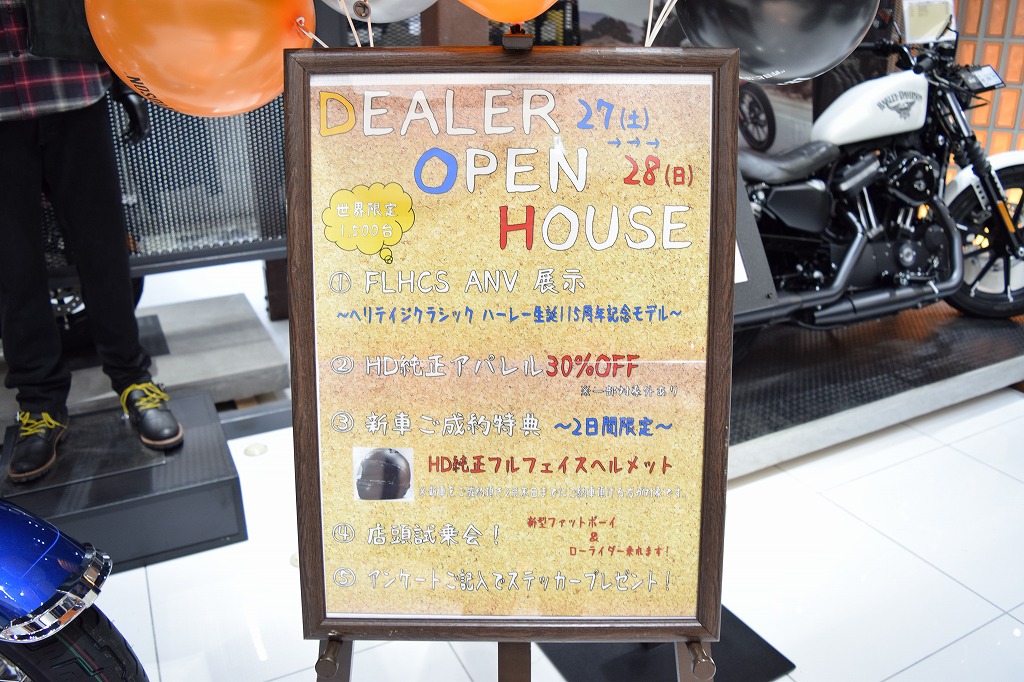 DEALER 27(土)
→→→
OPEN 28(日)
HOUSE
世界限定
1,500台
① FLHCS ANV 展示
~ヘリテイジクラシック ハーレー生誕115周年記念モデル~
② HD純正アパレル30%OFF
※一部対象外あり
③ 新車ご成約特典 ~2日間限定~
HD純正フルフェイスヘルメット
④ 店頭試乗会!
新型ファットボーイ
&
ローライダー乗れます!
⑤ アンケートご記入でステッカープレゼント!
HARLEY-DAVIDSON